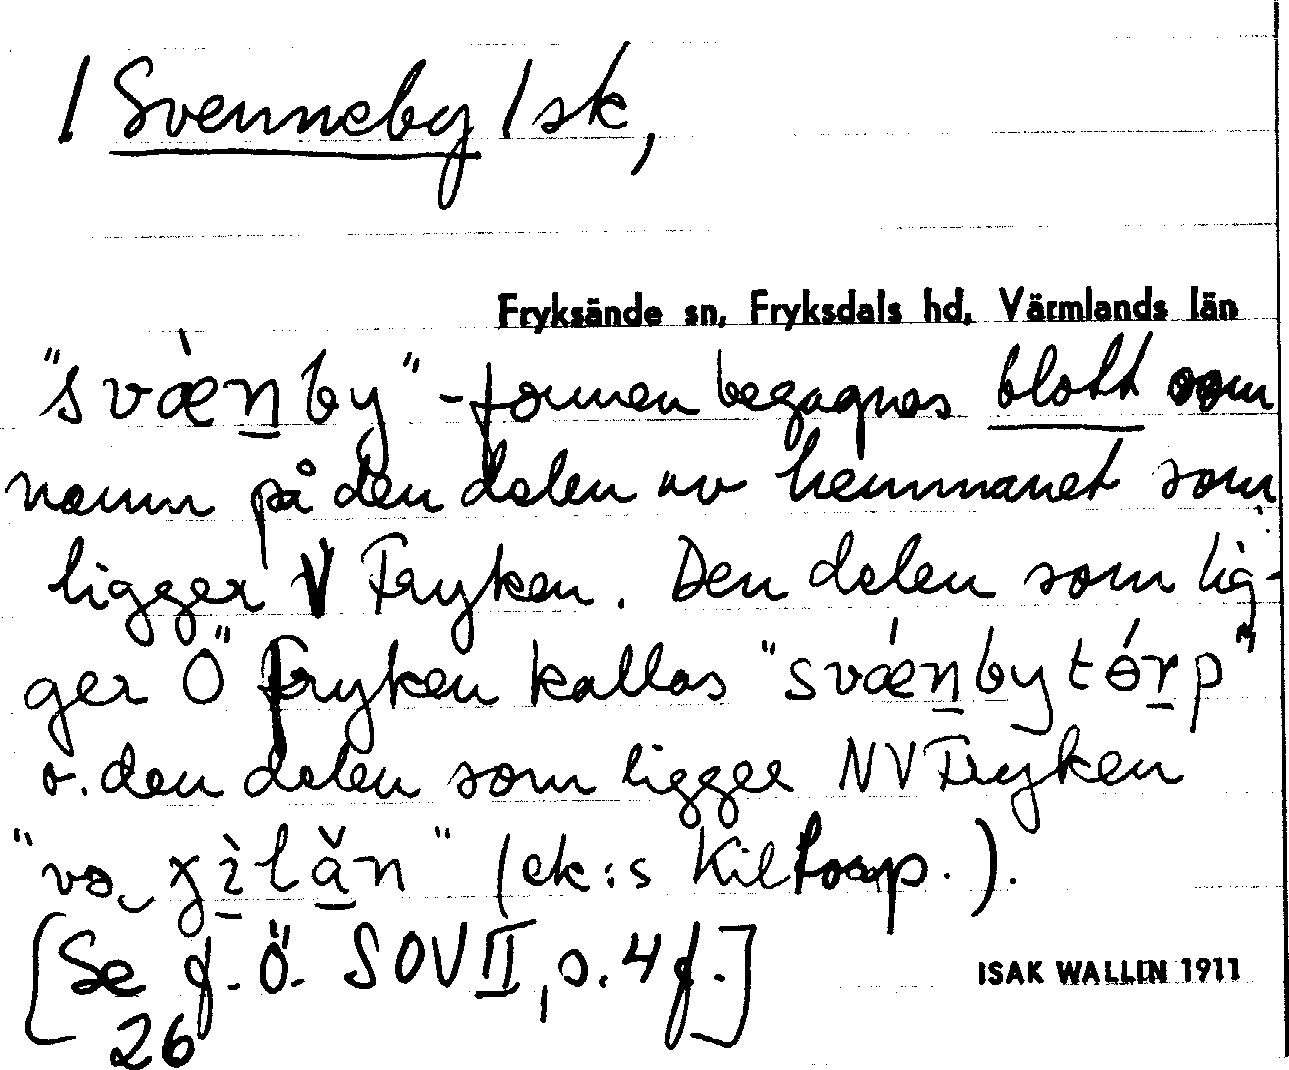 / Svenneby / sk,
Fryksände sn, Fryksdals hd, Värmlands län
"svæ̀n̲by"-formen begagnas blott som
namn på den delen av hemmanet som
ligger V Fryken. Den delen som lig-
ger Ö Fryken kallas "svǽn̲bytór̲p"
o. den delen som ligger NV Fryken
(ek:s Kiltorp.).
[Se f. ö. SOV II, s. 4 f.]
ISAK WALLIN 1911
26